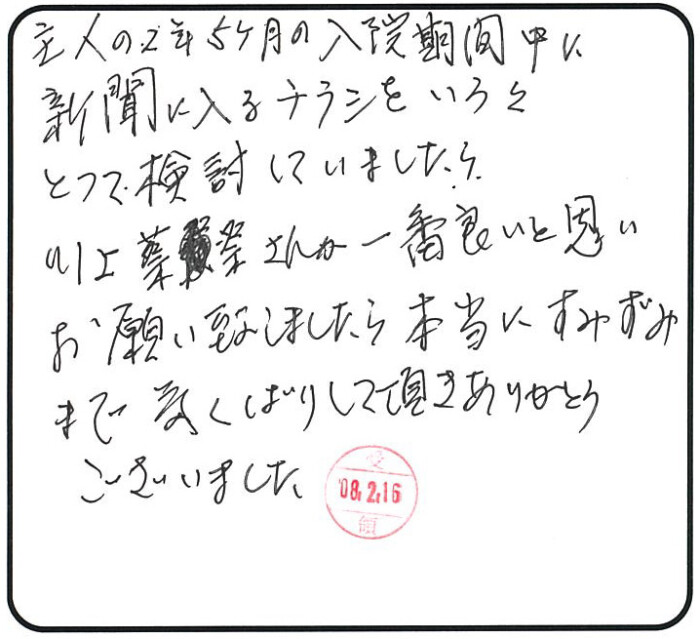 主人の2年5ケ月の入院期間中に
新聞に入るチラシをいろ々
とって検討していましたら
川上葬祭さんが一番良いと思い
お願い致しましたら本当にすみずみ
まで気くばりして頂きありがとう
ございました
受
'08.2.16
領